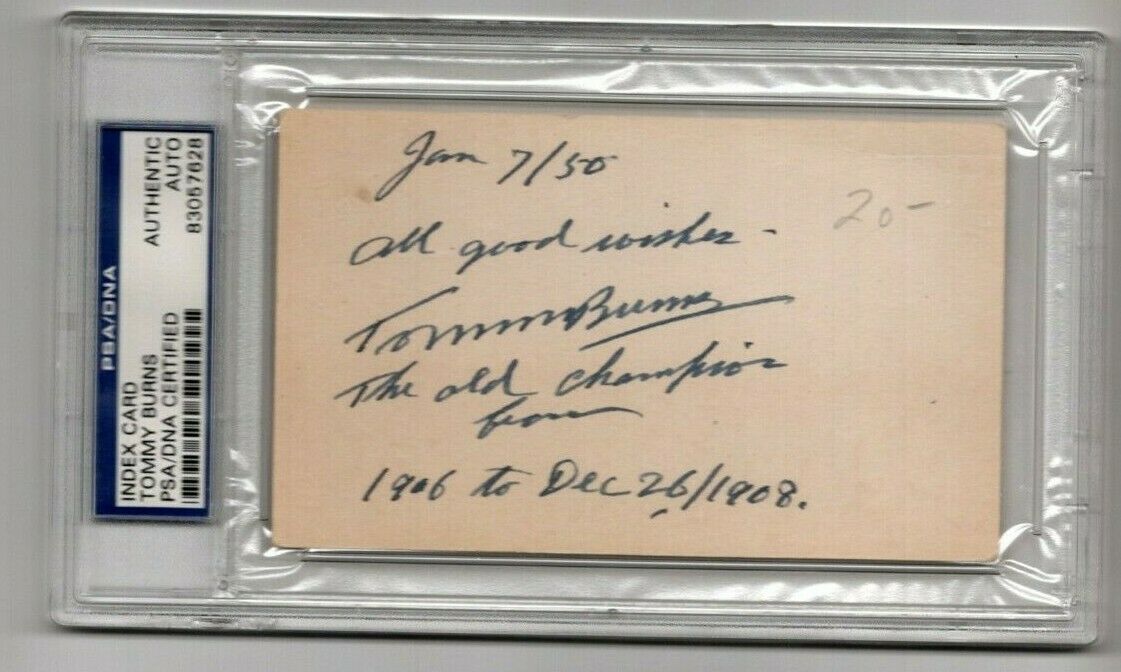 PSA/DNA
INDEX CARD
TOMMY BURNS
PSA/DNA CERTIFIED
AUTHENTIC
AUTO
83057628
Jan 7/50
20-
All good wishes -
Tommy Burns
The old champion
from
1906 to Dec 26/1908.